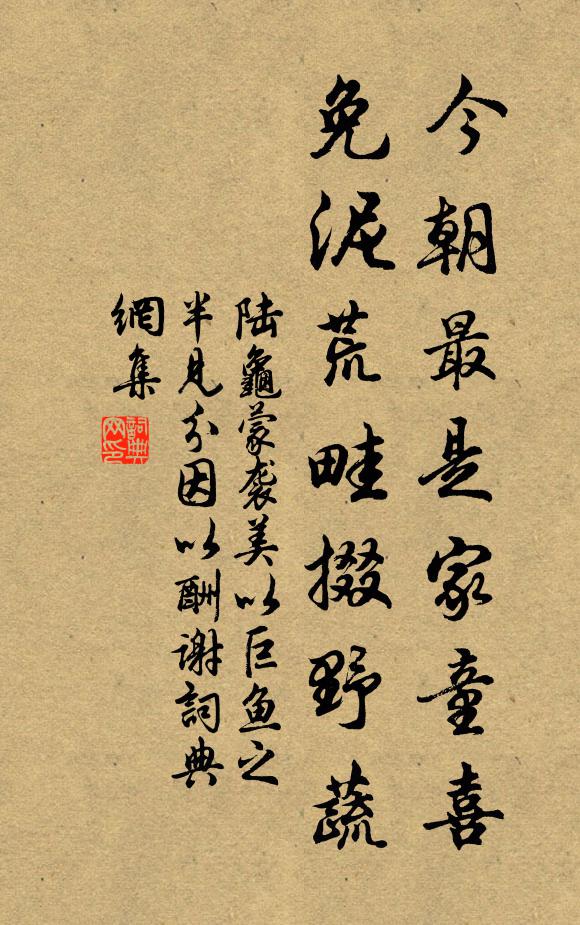 今朝最是家童喜
免泥荒畦掇野蔬
陆龜蒙袭美以巨鱼之
半見分因以酬谢詞典
網集
詞典
网印